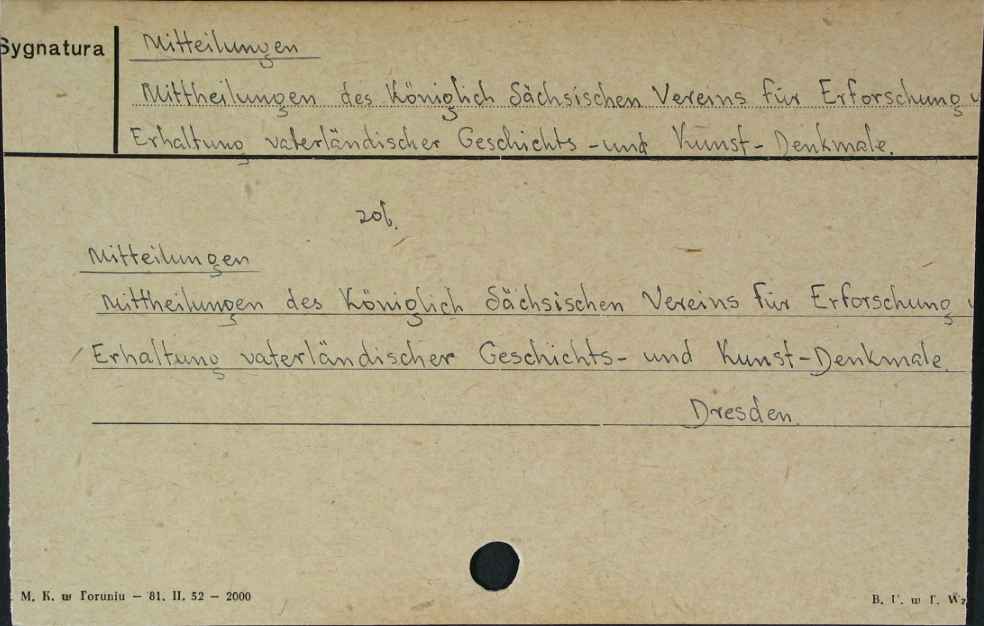 Sygnatura
Mitteilungen
Mittheilungen des Königlich Sächsischen Vereins für Erforschung u
Erhaltung vaterländischer Geschichts-und Kunst-Denkmale.
zob.
Mitteilungen
Mittheilungen des Königlich Sächsischen Vereins für Erforschung u
Erhaltung vaterländischer Geschichts- und Kunst-Denkmale.
Dresden.
M. K. w Toruniu — 81. II. 52 — 2000
B. U. w T. Wz